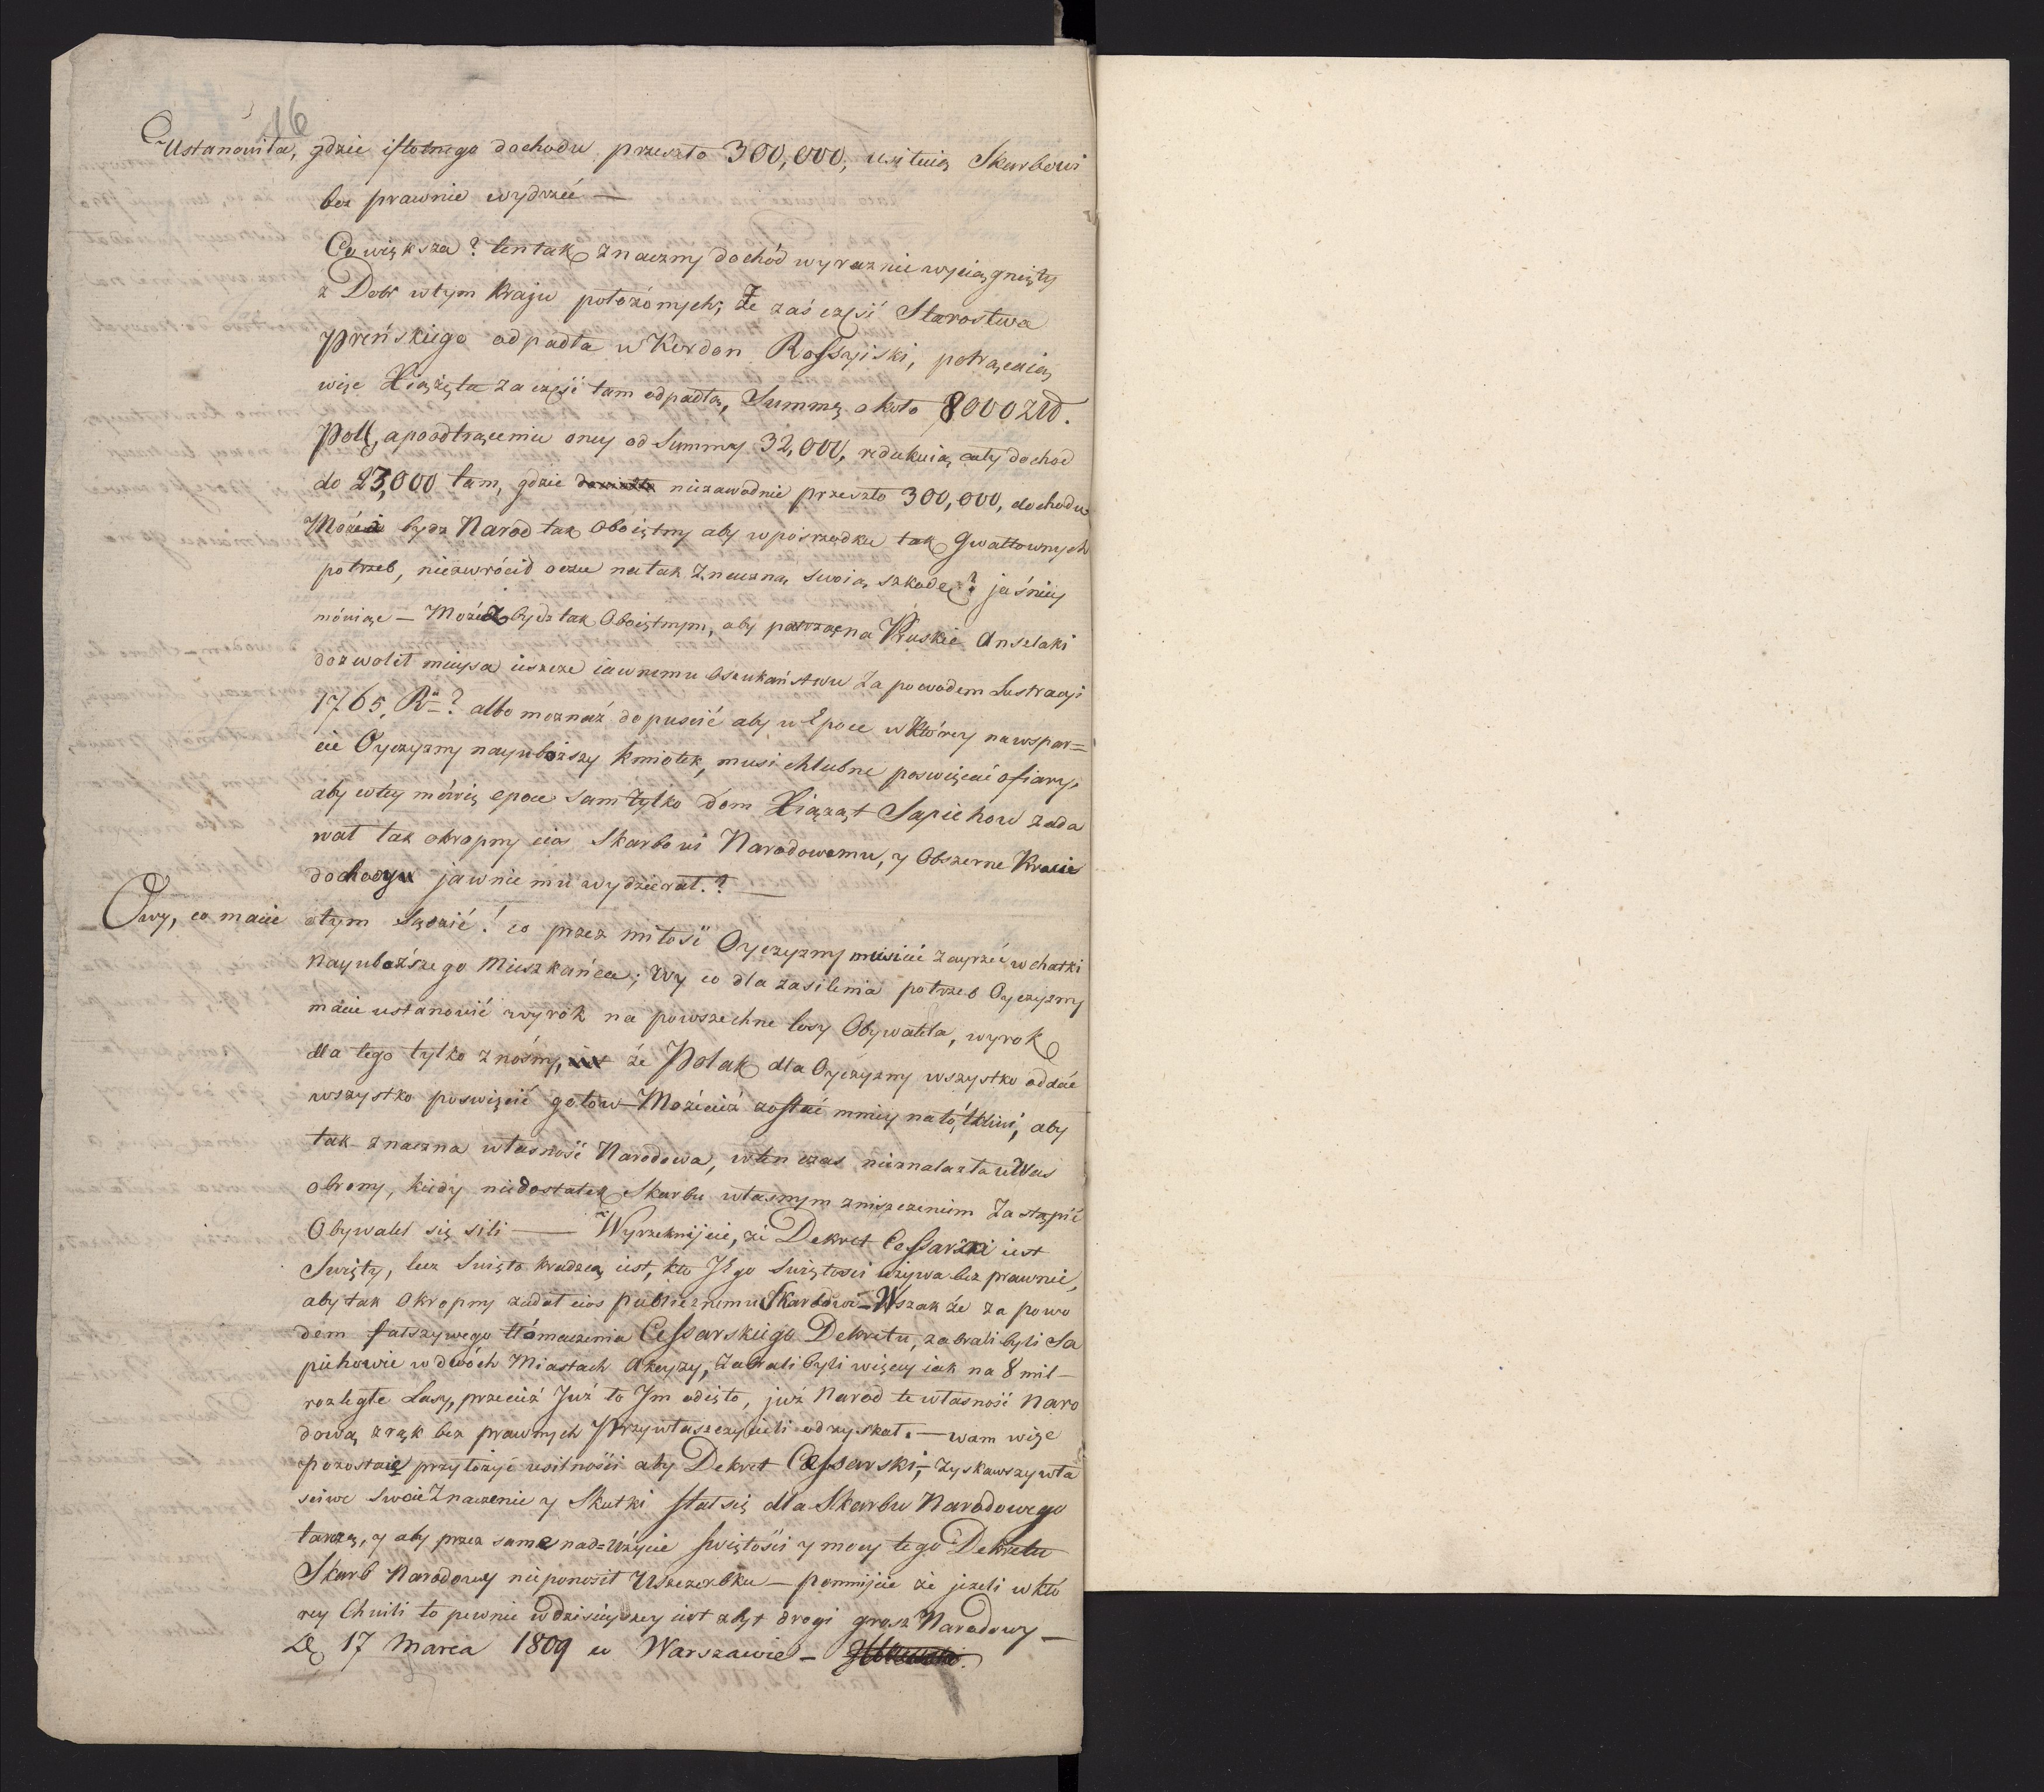 16
Ustanowiła, gdzie istotnego dochodu przeszło 300,000, usiłuią Skarbowi
bez prawnie wydrzéć —
Co większa? ten tak znaczny dochód wyraznie wyciągnięty
z Dobr w tym Kraju położonych; Że zaś częsć Starostwa
Preńskiego odpadła w Kordon Rossyiski, potrącaią
więc Xiążęta za częsć tam odpadłą, Summę około 8000 Złł.
Poll, a po odtrąceniu oney od Summy 32,000, redukuią cały dochod
do 23,000 tam, gdzie niezawodnie przeszło 300,000, dochodu
Może bydz Naród tak Oboiętny aby w pośrzodku tak Gwałtownych
potrzeb, niezwrócił oczu na tak Znaczną swoią szkodę? jaśniey
mówiąc — Możeż bydz tak Oboiętnym, aby patrząc na Pruskie Anszlaki
dozwolił mieysca ieszcze iawnemu Oszukaństwu Za powodem Lustracyi
1765, Rü? albo moznaż dopuscić aby w Epoce w Którey na wspar=
cie Oyczyzny nayuboższy kmiotek, musi chlubne poswięcać ofiary,
aby w tey mówię epoce sam tylko dom Xiążąt Sapiehow zada
wał tak okropny cios Skarbowi Narodowemu, y Obszerne Kraie
dochody jawnie mu wydzierał.? —
O wy, co macie otym Sądzić! co przez miłość Oyczyzny musicie zayrzéć w chatki
Nayuboższego Mieszkańca; Wy co dla zasilenia potrzeb Oyczyzny
macie ustanowić wyrok na powszechne losy Obywatela, wyrok
dla tego tylko znośny, że Polak dla Oyczyzny wszystko oddać
wszystko poswięcić gotów — Możecież zostać mniey na to tkliwi, aby
tak znaczna własność Narodowa, w ten czas nieznalazła u Was
obrony, kiedy niedostatek Skarbu własnym zniszczeniem Zastąpić
Obywatel się sili — Wyrzeknijcie, że Dekret Cessarski iest
Swięty, lecz Swięto kradzcą iest, kto Jego swiętości używa bez prawnie,
aby tak Okropny zadał cios publicznemu Skarbowi — Wszak że za powo
dem fałszywego tłómaczenia Cessarskiego Dekretu, zabrali byli Sa
piehowie w dwóch Miastach Akcyzy, Zabrali byli więcey iak na 8 mil —
rozległe Lasy, przecież Już to Jm odięto, już Narod te własność Naro
dową z rąk bez prawnych Przywłaszczycieli odzyskał. — wam więc
pozostaie przyłożyć usilności aby Dekret Cessarski, zyskawszy wła
sciwe Swoie Znaczenie y Skutki stał się dla Skarbu Narodowego
tarczą, y aby przez same nad=Użycie swiętości y mocy tego Dekretu
Skarb Narodowy nieponosił Uszczerbku — pomnijcie że jeżeli w któ
rey Chwili to pewnie w dzisieyszey iest zbyt drogi grosz Narodowy —
D 17 Marca 1809 w Warszawie —